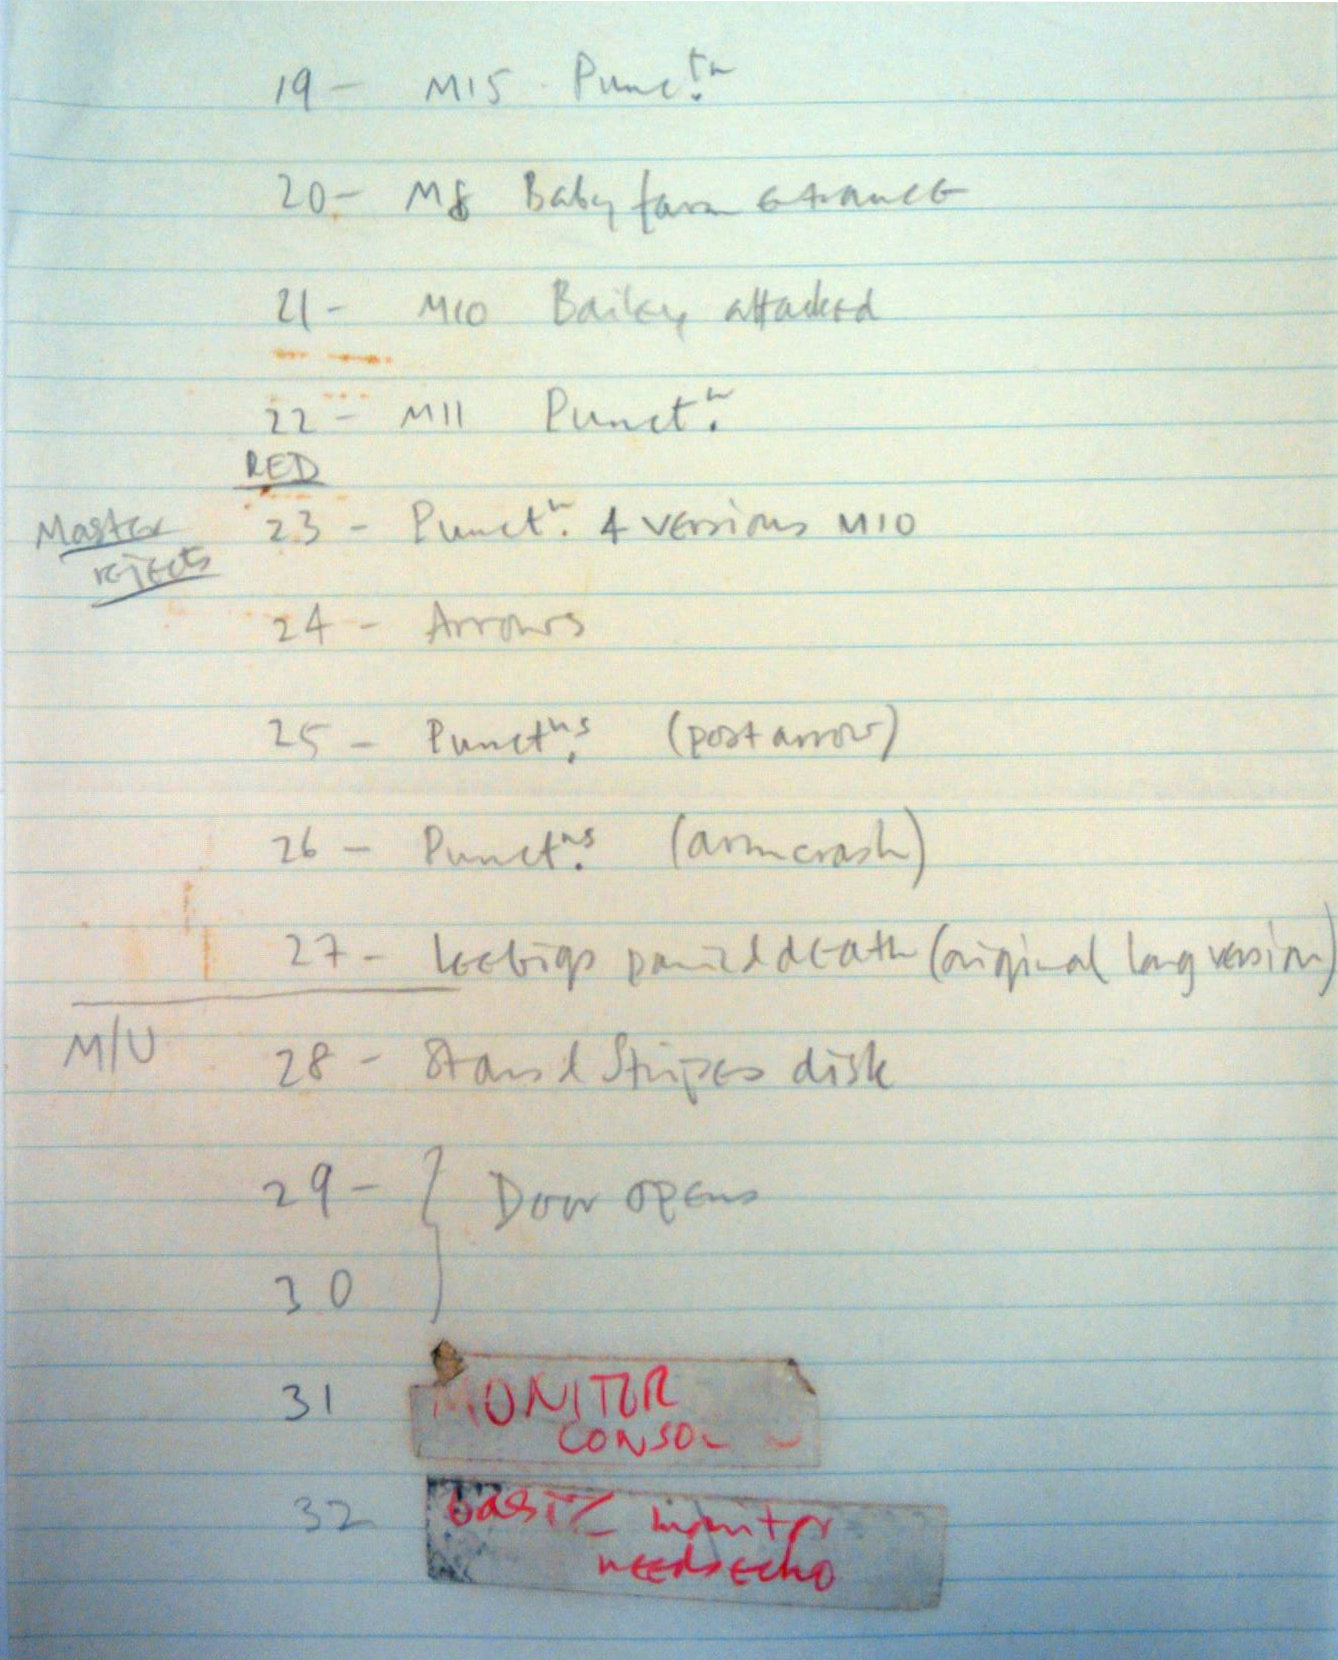 19 - M15 Punct.n
20 - M8 Baby farm entrance
21 - M10 Bailey attacked
22 - M11 Punct.n
RED
Master
rejects
23 - Punct.n 4 versions M10
24 - Arrows
25 - Punct.ns (post arrow)
26 - Punct.ns (arm crash)
27 - death (original long version)
M/U
28 - Stars & Stripes disk
29 - { Door opens
30
31 MONITOR
CONSOL
32 basic monitor
needs echo